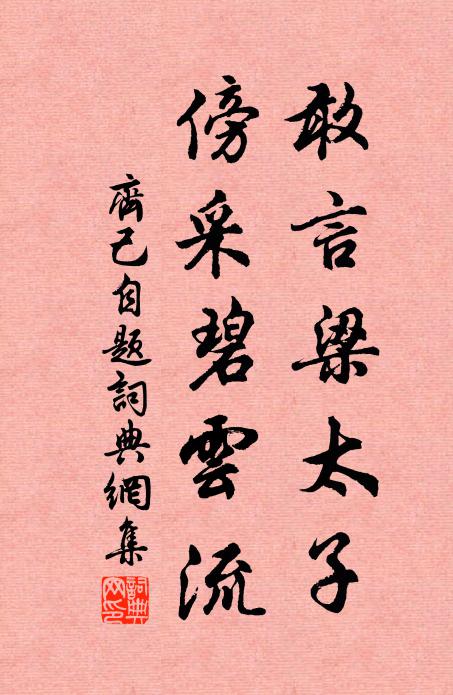 敢言梁太子
傍采碧雲流
齊己自題詞典網集
詞典网印